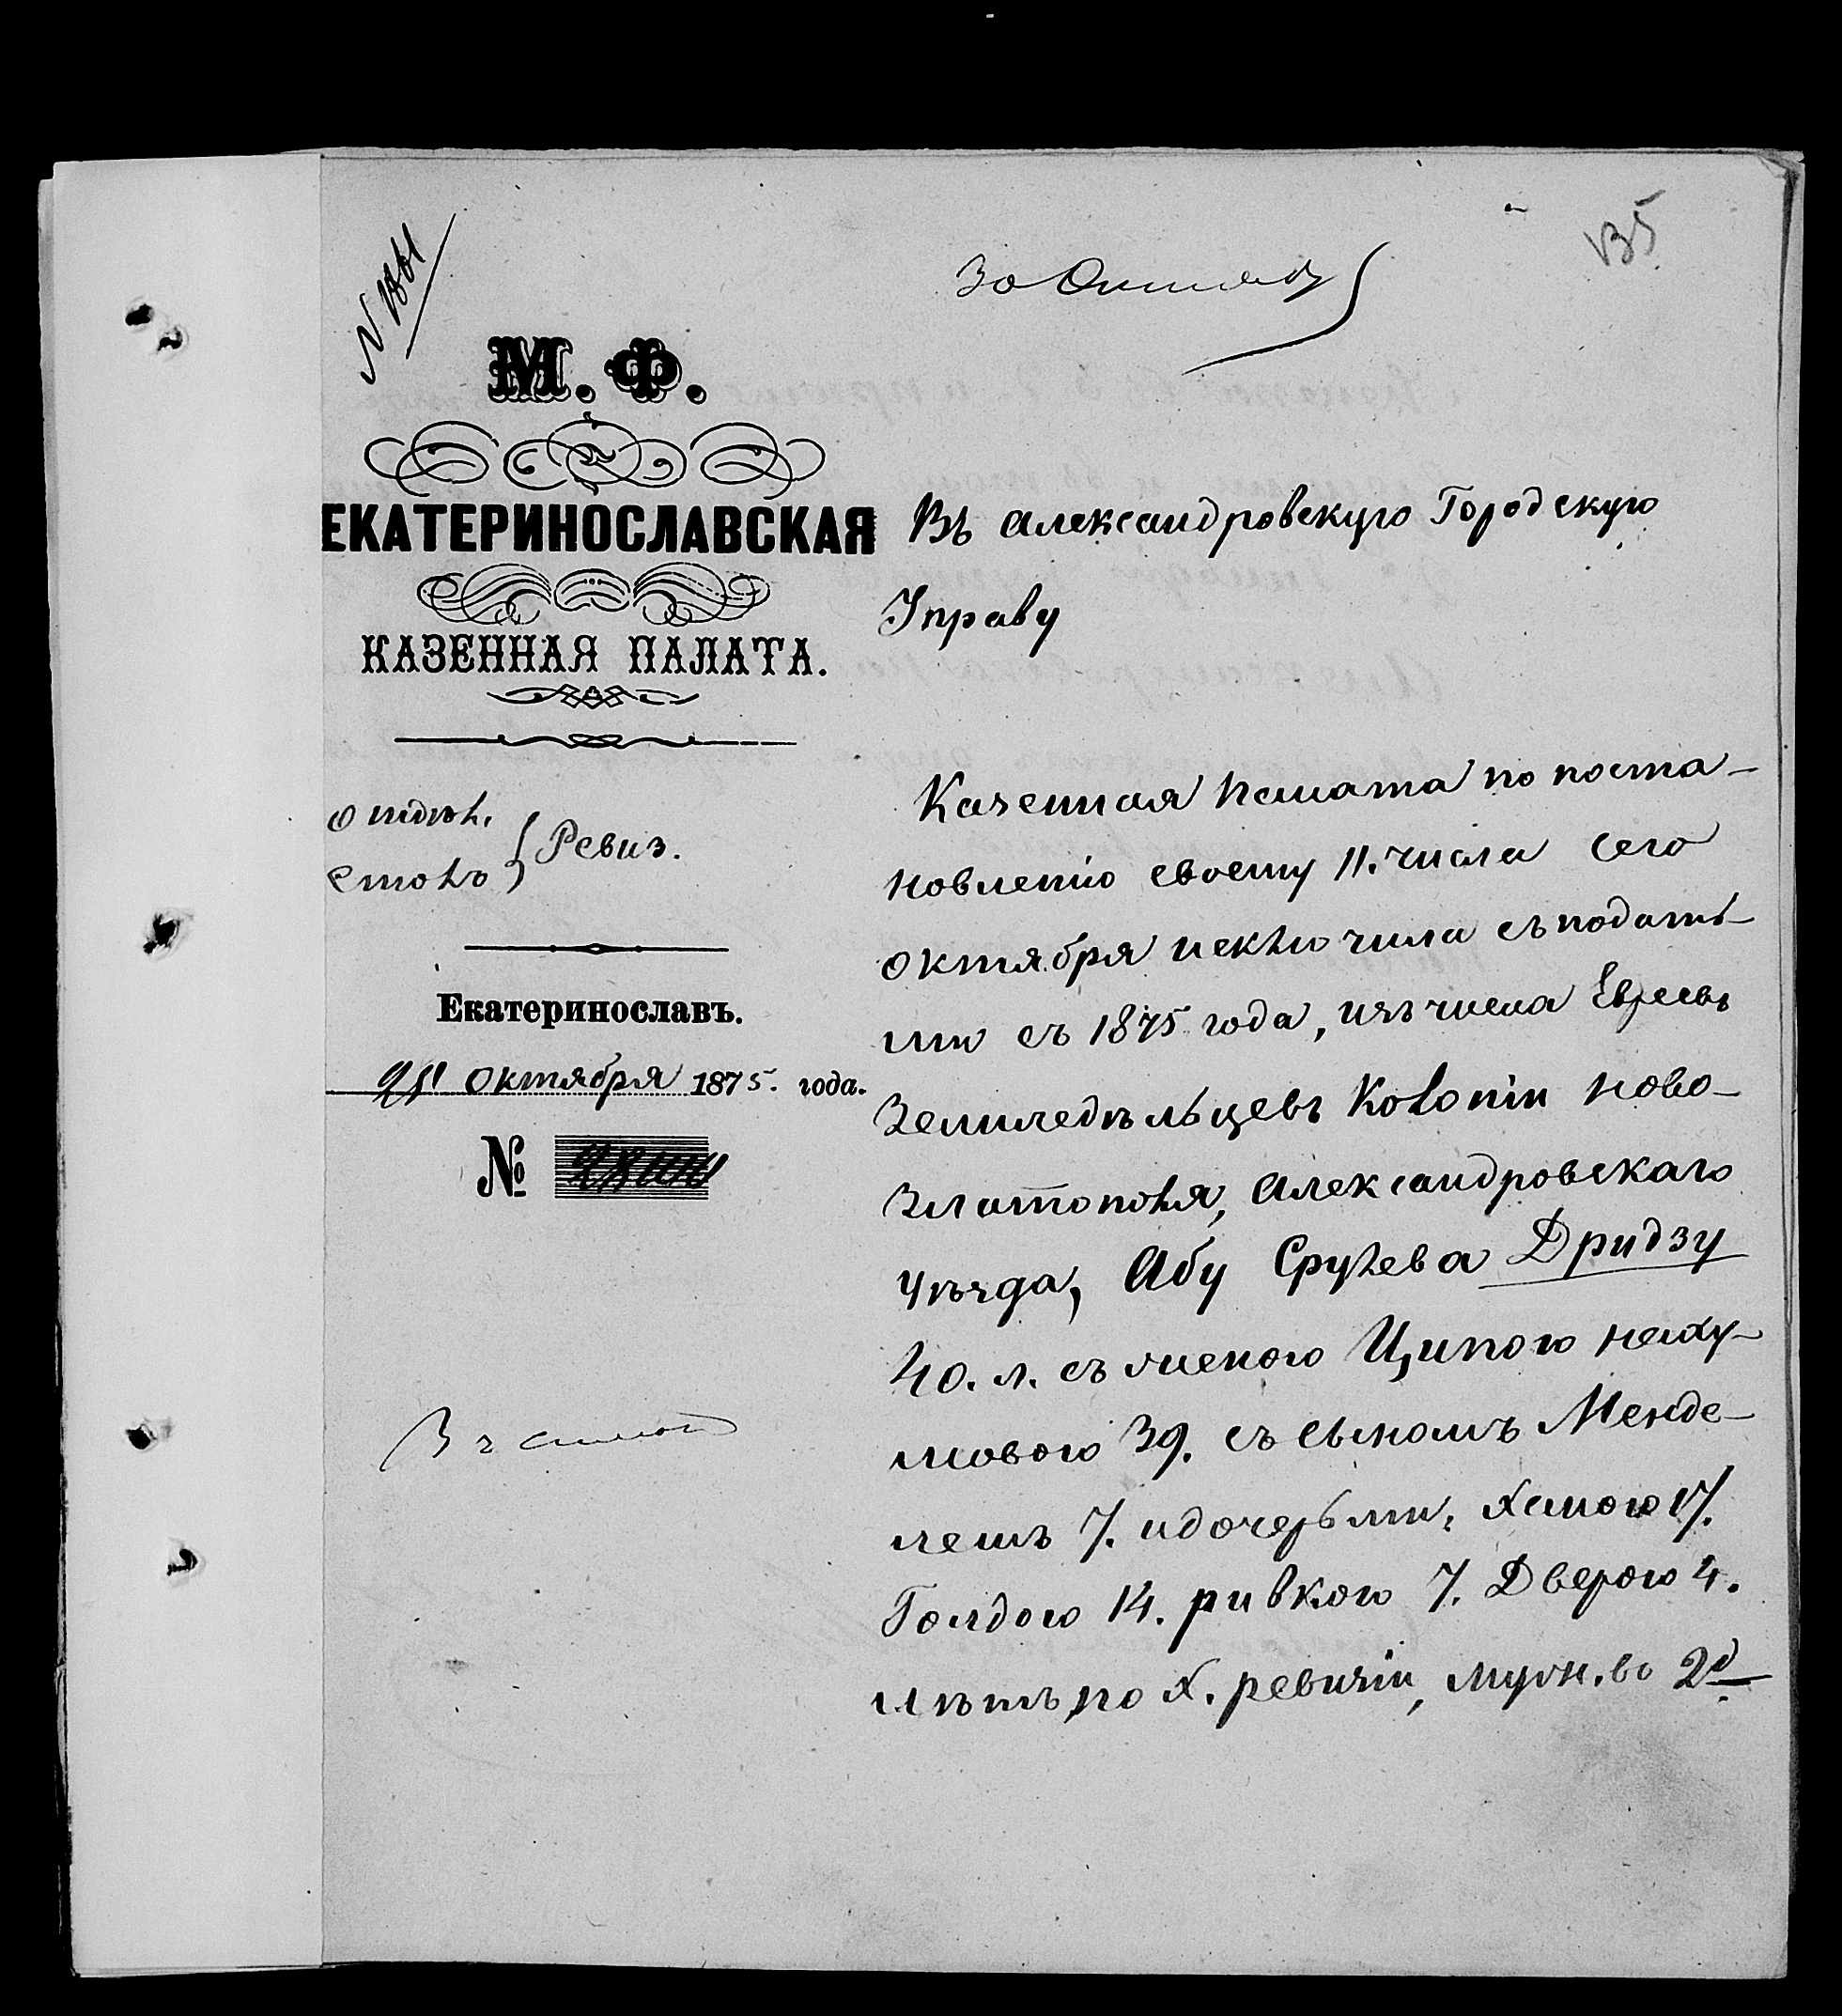 135
М. Ф.
ЕКАТЕРИНОСЛАВСКАЯ
КАЗЕННАЯ ПАЛАТА.
Отдѣл.
Столъ } Ревиз.
Екатеринославъ.
Октября 1875. года.
№
Въ Александровскую Городскую
Управу
Казенная Палата по поста-
новленію своему 11. числа сего
Октября исключила съ податъ-
ми съ 1875 года, изъ числа Евреевъ
Земледѣльцевъ Колоніи Ново-
златополя, Александровскаго
уѣзда, Абу Срулева Дридзу
40. л. съ женою Ципою Наху-
мовою 39. съ сыномъ Менде-
лемъ 7. и дочерьми: Хаею 17.
Голдою 14. Ривкою 7. Дверою 4.
лѣтъ, по X. ревизіи, муж. во 2д